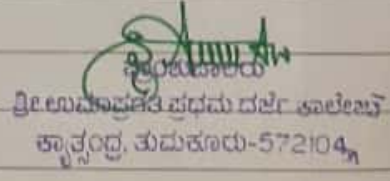 ಪ್ರಾಂಶುಪಾಲರು
ಶ್ರೀ ಉಮಾಪ್ರಗತಿ ಪ್ರಥಮ ದರ್ಜೆ ಕಾಲೇಜ್
ಕ್ಯಾತ್ಸಂದ್ರ, ತುಮಕೂರು-572104